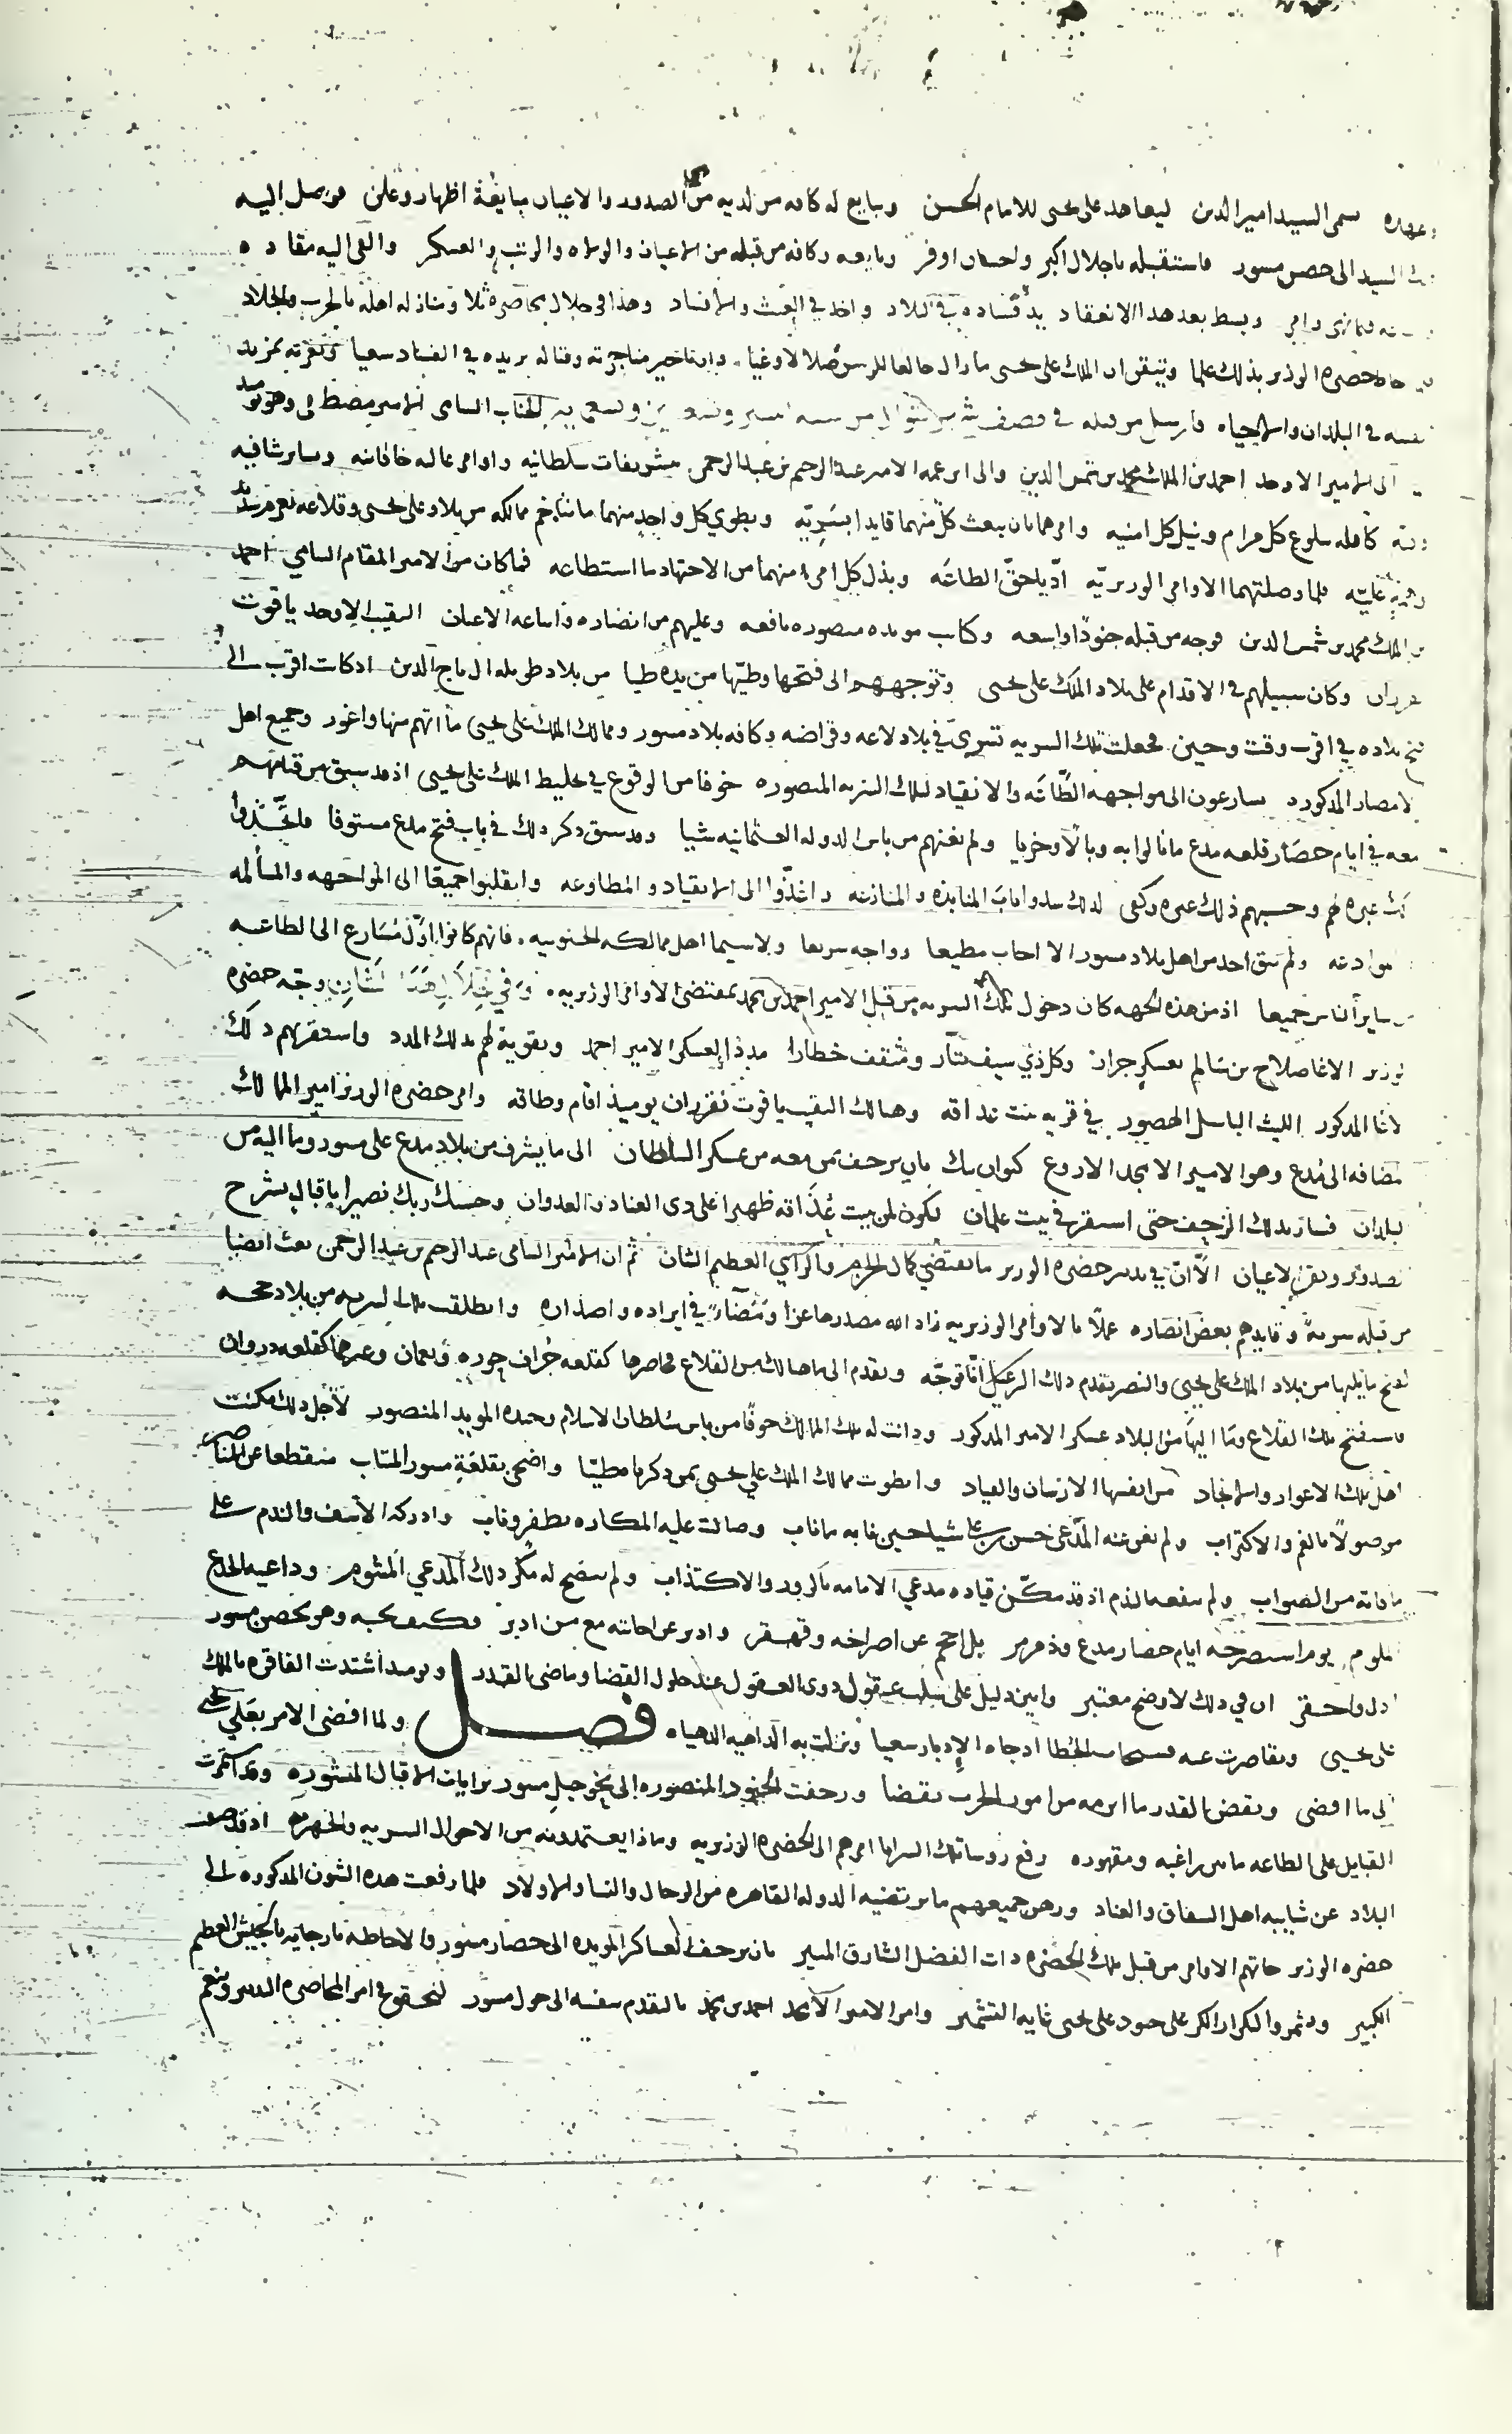 وعهده سمى السيد امير الدين ليعاهد على يحيى للامام الحسن ويبايع له كافه من لديه من الصدور والاعيان مبايعة اظهار وعلن فوصل اليه
السيد الى حصن مسور فاستقبله باجلال اكبر واحسان اوفر وبايعه وكافه من قبله من الاعيان والولاه والرتب والعسكر والقى اليه مقاده
وبسط بعد هذا الانعقاد يد فساده في البلاد واخذ في العث والافساد وهذا في خلال محاصرة ثلا ومنازلة اهله بالحرب والجلاد
حاط حضره الوزير بذلك علما وتيقن ان الملك على يحيى ما زال وان تاخير مناجزته وقتاله يزيده في الفساد سعيا
نفسه في البلدان والاحياه فارسل من قبله في الجناب السامى الامير مصطفى وهو يومئذ
الى الامير الاوحد احمد بن الملك محمد بن شمس الدين والى ابن عمه الامير عبد الرحيم بن عبد الرحمن بتشريفات سلطانيه واوامر عاليه خاقانيه
كافله ببلوغ كل مرام ونيل كل امنيه وامرهما بان يبعث كل منهما قايدا بسَرِيّه ويطوي كل واحد منهما ما يتاخم ممالكه من بلاد على يحيى وقلاعه
فلما وصلتهما الاوامر الوزيريّه ادّيا حقّ الطاعَه وبذل كل امرء منهما من الاجتهاد ما استطاعه فما كان من الامير المقام السامي احمد
بن الملك محمد بن شمس الدين فوجه من قبله جنودًا واسعه وكتايب مويده منصوره نافعه وعليهم من انصاره واتباعه الاعيان النقيب الاوحد ياقوت
وكان سبيلهم في الاقدام على بلاد الملك على يحيى وتوجههم الى فتحها وطيّها من يده طيا من بلاد طويله ال تاج الدين اذ كانت اقرب الى
فتح بلاده في اقرب وقت وحين فجعلت تلك السريه تسرى في بلاد لاعه وقراضه وكافه بلاد مسور وممالك الملك على يحيى ما اتهم منها واغور وجميع اهل
الامصار المذكوره يسارعون الى مواجهه الطَّاعَه والانقياد لتلك السريه المنصوره خوفا من الوقوع في تخليط الملك على يحيى اذ قد سبق من قتالهم
معه في ايام حصَار قلعه مدع ما نالوا به وبالًا وخزيا ولم يغنهم من باس الدوله العثمانيه شيا وقد سبق ذكر ذلك في باب فتح مدع مستوفا
عبره لهم وحسبهم ذلك عبره وكفى لذلك سدوا باب المنابذه والمنازعه واغذّوا الى الانقياد والمطاوعه وانقلبوا جميعًا الى المواجهه والمسالمه
ولم يبق احد من اهل بلاد مسور الا اجاب مطيعا وواجه سريعا ولا سيما اهل ممالكه الجنوبيه فانهم كانوا اوّل مُسَارع الى الطاعه
اذ من هذه الجهه كان دخول تلك السريه من قبل الامير احمد بن محمد بمقتضى الاوامر الوزيريه وفي خِلَال هَذَا وجّه حضره
الوزير الاغا صلاح بن سَالم بعسكر جرار وكل ذي سيف بتّار ومثقف خطار مددًا لعسكر الامير احمد وتقوية لهم بذلك المدد واستقر بهم ذلك
الاغا المذكور الليث الباسل الهصور في قريه بيت عذاقه وهنالك النقيب ياقوت يوميذ اقام وطاقه وامر حضره الوزير امير الممالك
المضافه الى مدع وهو الامير الامجد الاروع كيوان بك بان يزحف بمن معه من عسكر السلطان الى ما يشرف من بلاد مدع على مسور وما اليه من
البلدان فسار بذلك الزحف حتى استقر في بيت علمان ليكون لمن ببيت عُذَاقه ظهيرا على ذوى العناد والعدوان وحسبك ربك نصيرا باقبال يشرح
الصدور ويقر الاعيان الا انّ في تدبير حضره الوزير ما يقتضي كمال الحزم والراي العظيم الشان ثم ان الامير السامى عبد الرحيم بن عبد الرحمن بعث ايضا
من قبله سريةً وقايدهم بعضَ انصَاره عملًا بالاوامر الوزيريه زاد الله مصدرها عزا ومَضَاءً في ايراده واصداره وانطلقت تلك السريه من بلاد حجه
لفتح ما يليها من بلاد الملك على يحيى والنصر يقدم ذلك الرعيل انّا توجّه وتقدم الى ما هنالك من القلاع فحاصرها كقلعه جُراف وقلعه ونعمان وغيرهما كقلعه دروان
فاستفتح تلك القلاع وما اليها من البلاد عسكر الامير المذكور ودانت له تلك الممالك خوفًا من باس سُلطان الاسلام وجنده المويد المنصور لاجل ذلك مكنت
اهل تلك الاغوار والانجاد من انفسها الارسان والقياد وانطوت ممالك الملك على يحيى بمن ذكر ما مطيّا واضحى بقلعَةِ مسور المنتاب منقطعا عن المناصر
موصولًا بالغم والاكتراب ولم يغن عنه المدَّعى حسن بن على شيا حين غابه ما ناب وصالت عليه المكاره بظفر وناب وادركه الاسف والندم على
ما فاته من الصواب ولم ينفعه الندم اذ قد مكّن قياده مدعي الامامه بالزور والاكتذاب ولم يتضح له مكر ذلك المدعي المشوم وداعيه الخدع
الملوم يوم استصرخه ايام حصار مدع وذمرمر بل احجم عن اصراخه وقهقر وادبر عن اعانته مع من ادبر فكيف ينجيه وهو بحصن مسور
اذل واحقر ان في ذلك لاوضح معتبر وابين دليل على سلب عقول ذوى العقول عند حلول القضا وماضى القدر ويوميذ اشتدت الفاقره بالملك
على يحيى وتقاصرت عنه فسيحات الخُطا اذ جاه الادبار سعيا ونزلت به الداهيه الدهياه فصل ولما افضى الامر بعَلى يحيى
الى ما افضى ونقض القدر ما ابرمه من امور الحرب نقضا وزحفت الجنود المنصوره الى نحو جبل مسور برايات الاقبال المنشوره
القبايل على الطاعه ما بين راغبه ومقهوره رفع روسا تلك السرايا امرهم الى الحضره الوزيريه وماذا يعتمدونه من الاحوال السريه والجهريه اذ قد صفت
البلاد عن شايبه اهل النفاق والعناد ورهن جميعهم ما يرتضيه الدوله القاهره من الرجال والنسا والاولاد فلما رفعت هذه الشون المذكوره الى
حضره الوزير جاتهم الاوامر من قبل تلك الحضره ذات الفضل الشارق المنير بان يزحف العساكر المويده الى حصار مسور والاحاطه بارجايه بالجيش العظيم
الكبير ويشمروا لتكرار الكر على جنود على يحيى غايه التشمير وامر الامير الامجد احمد بن محمد بالتقدم بنفسه الى حول مسور